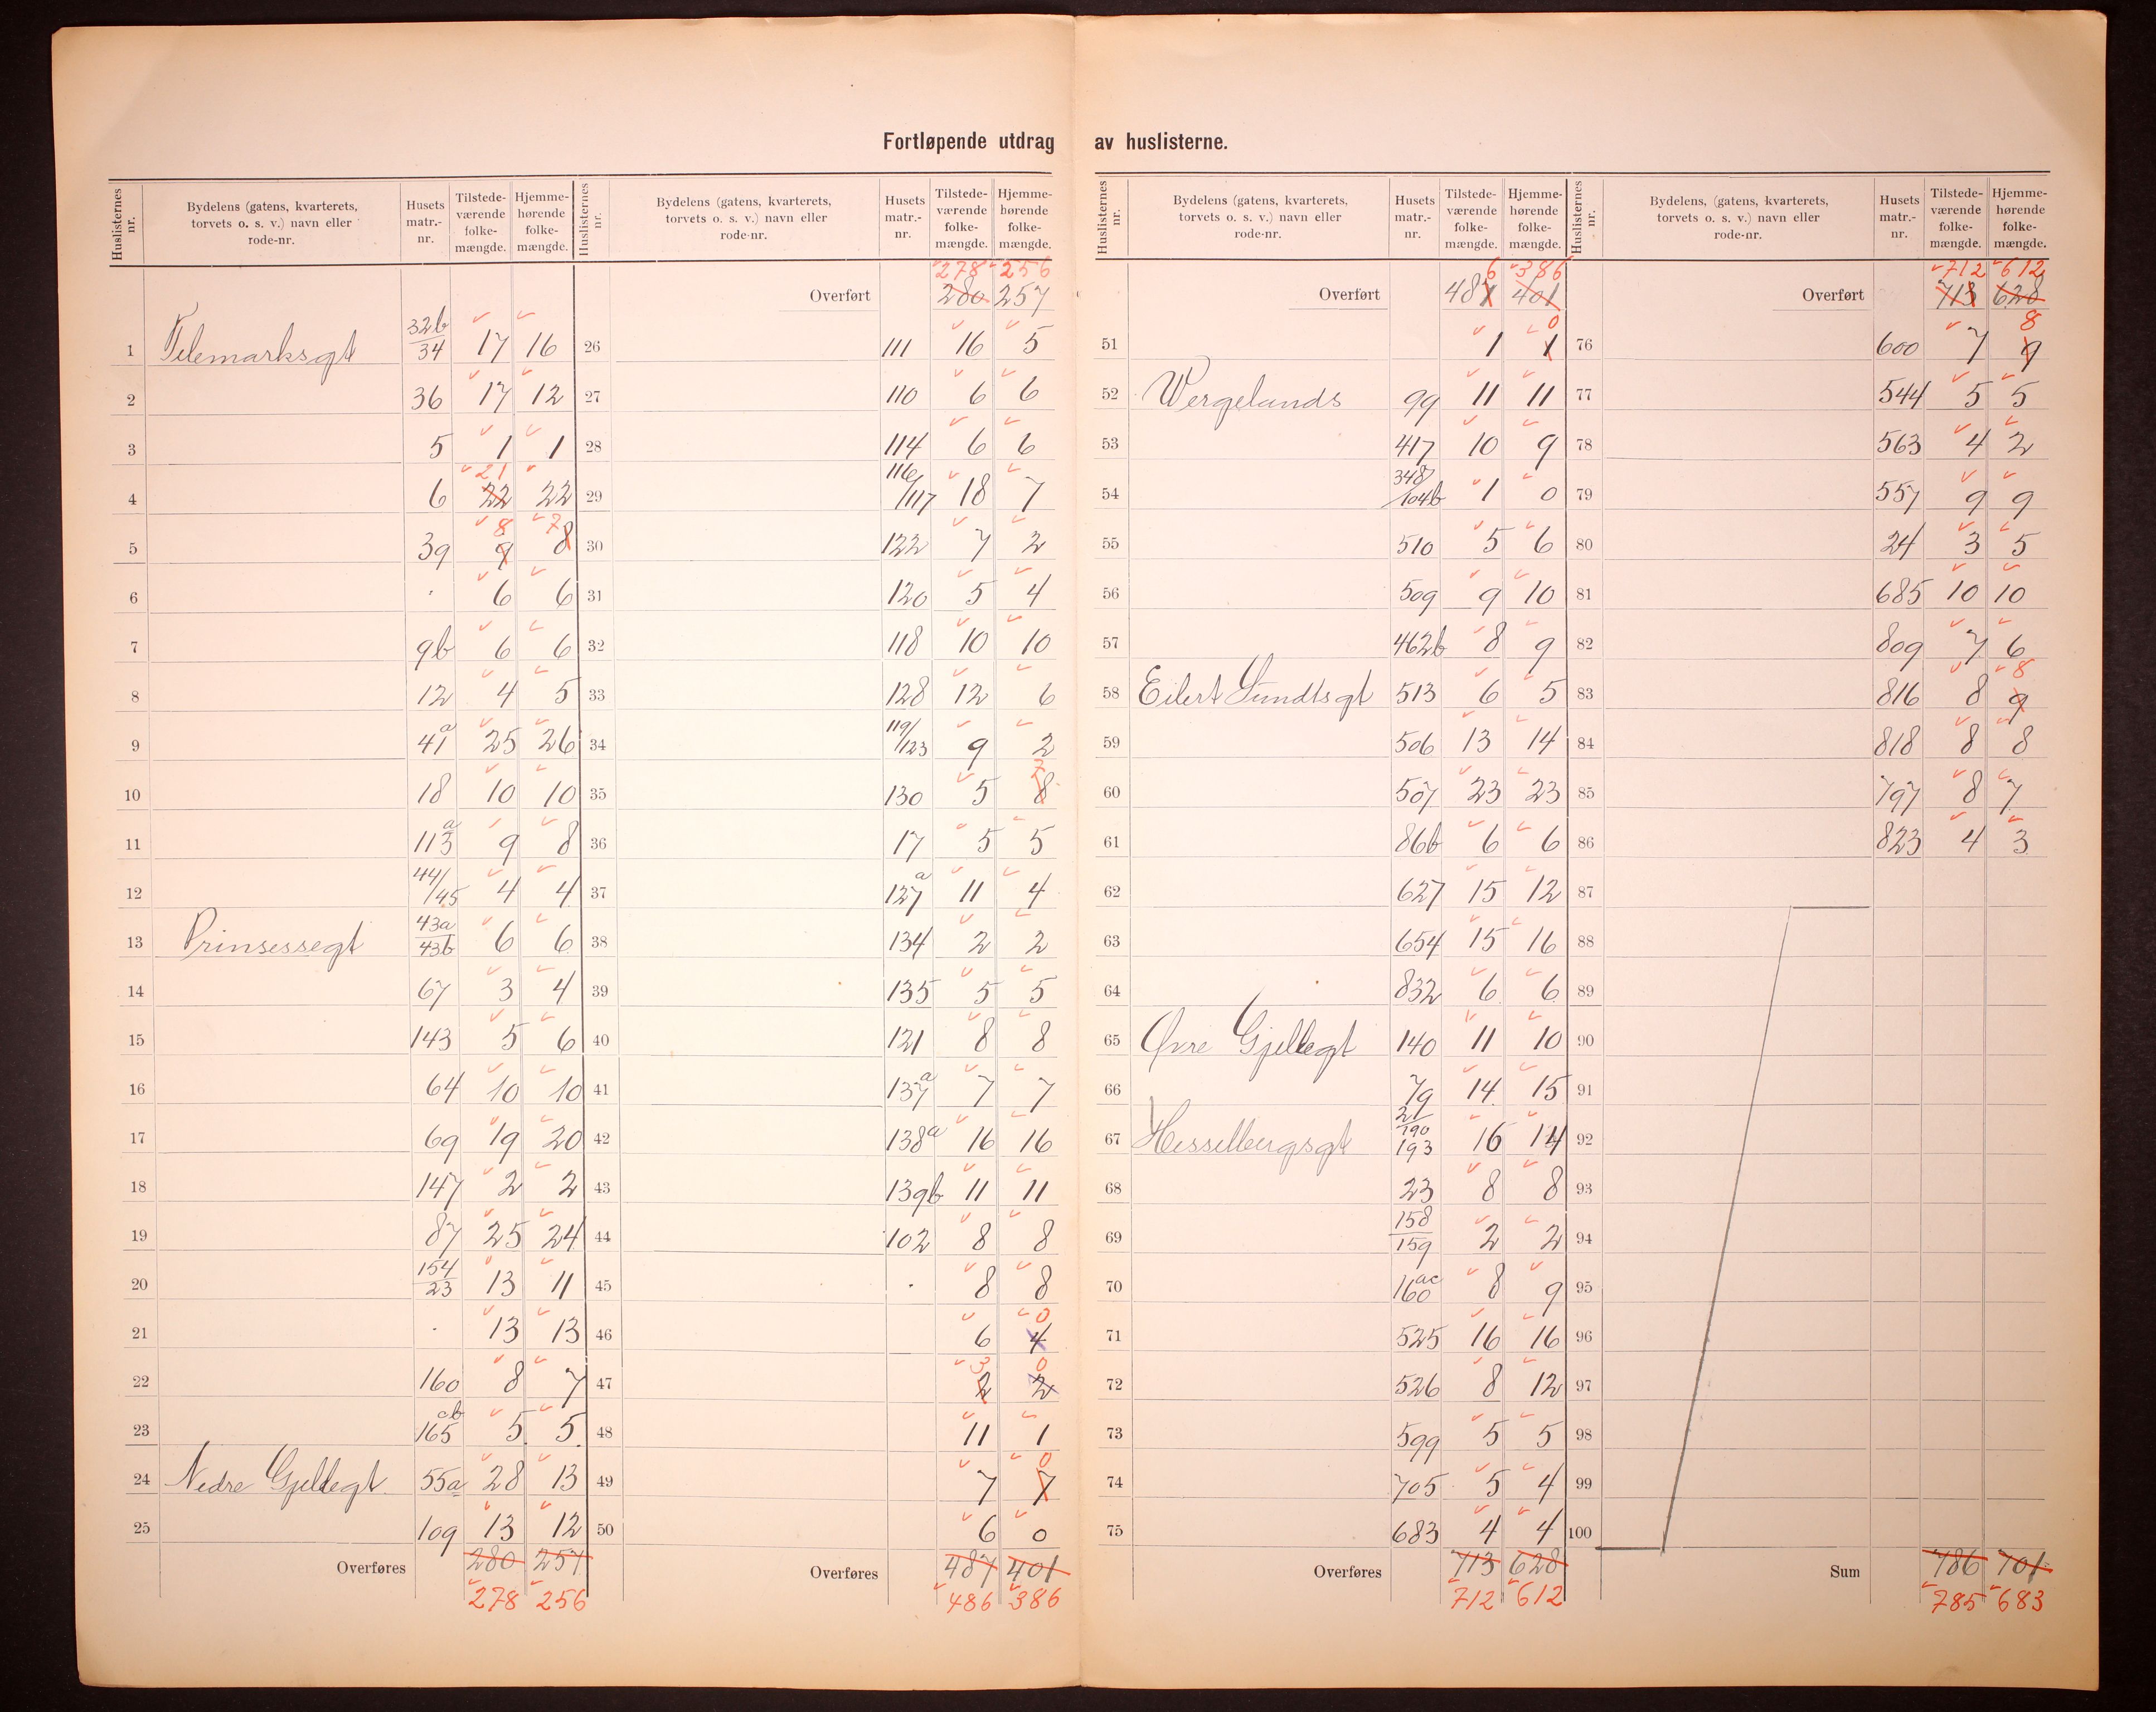 Fortløpende utdrag av huslisterne.
Huslisternes nr. Bydelens (gatens, kvarterets, torvets o. s. v.) navn eller rode-nr. Husets matr.-nr. Tilstede-værende folke-mængde. Hjemme-hørende folke-mængde.
1 Telemarksgt 32b/34 17 16
2 36 17 12
3 5 1 1
4 6 22 21 22
5 39 9 8 8 7
6 · 6 6
7 9b 6 6
8 12 4 5
9 41a 25 26
10 18 10 10
11 113a 9 8
12 44/145 4 4
13 Prinsessegt 43a/43b 6 6
14 67 3 4
15 143 5 6
16 64 10 10
17 69 19 20
18 147 2 2
19 87 25 24
20 154/23 13 11
21 · 13 13
22 160 8 7
23 165cb 5 5
24 Nedre Gjellegt 55a 28 13
25 109 13 12
Overføres 280 257
278 256
Huslisternes nr. Bydelens (gatens, kvarterets, torvets o. s. v.) navn eller rode-nr. Husets matr.-nr. Tilstede-værende folke-mængde. Hjemme-hørende folke-mængde.
278 256
Overført 280 257
26 111 16 5
27 110 6 6
28 114 6 6
29 116/117 18 7
30 122 7 2
31 120 5 4
32 118 10 10
33 128 12 6
34 119/123 9 2
35 130 5 8
36 17 5 5
37 127a 11 4
38 134 2 2
39 135 5 5
40 121 8 8
41 137a 7 7
42 138a 16 16
43 139b 11 11
44 102 8 8
45 · 8 8
46 6 4 0
47 2 3 2 0
48 11 1
49 7 7 0
50 6 0
Overføres 487 401
486 386
Huslisternes nr. Bydelens (gatens, kvarterets, torvets o. s. v.) navn eller rode-nr. Husets matr.-nr. Tilstede-værende folke-mængde. Hjemme-hørende folke-mængde.
6 386
Overført 487 401
51 1 1 0
52 Wergelands 99 11 11
53 417 10 9
54 348/104b 1 0
55 510 5 6
56 509 9 10
57 462b 8 9
58 Eilert Sundtsgt 513 6 5
59 506 13 14
60 507 23 23
61 86b 6 6
62 627 15 12
63 654 15 16
64 832 6 6
65 Øvre Gjellegt 140 11 10
66 79 14 15
67 Hesselbergsgt 21/190 193 16 14
68 23 8 8
69 158/159 2 2
70 160ac 8 9
71 525 16 16
72 526 8 12
73 599 5 5
74 705 5 4
75 683 4 4
Overføres 713 628
712 612
Huslisternes nr. Bydelens, (gatens, kvarterets, torvets o. s. v.) navn eller rode-nr. Husets matr.-nr. Tilstede-værende folke-mængde. Hjemme-hørende folke-mængde.
712 612
Overført 713 628
76 600 7 9 8
77 544 5 5
78 563 4 2
79 557 9 9
80 24 3 5
81 685 10 10
82 809 7 6
83 816 8 9 8
84 818 8 8
85 797 8 7
86 823 4 3
87
88
89
90
91
92
93
94
95
96
97
98
99
100
Sum 786 701
785 683